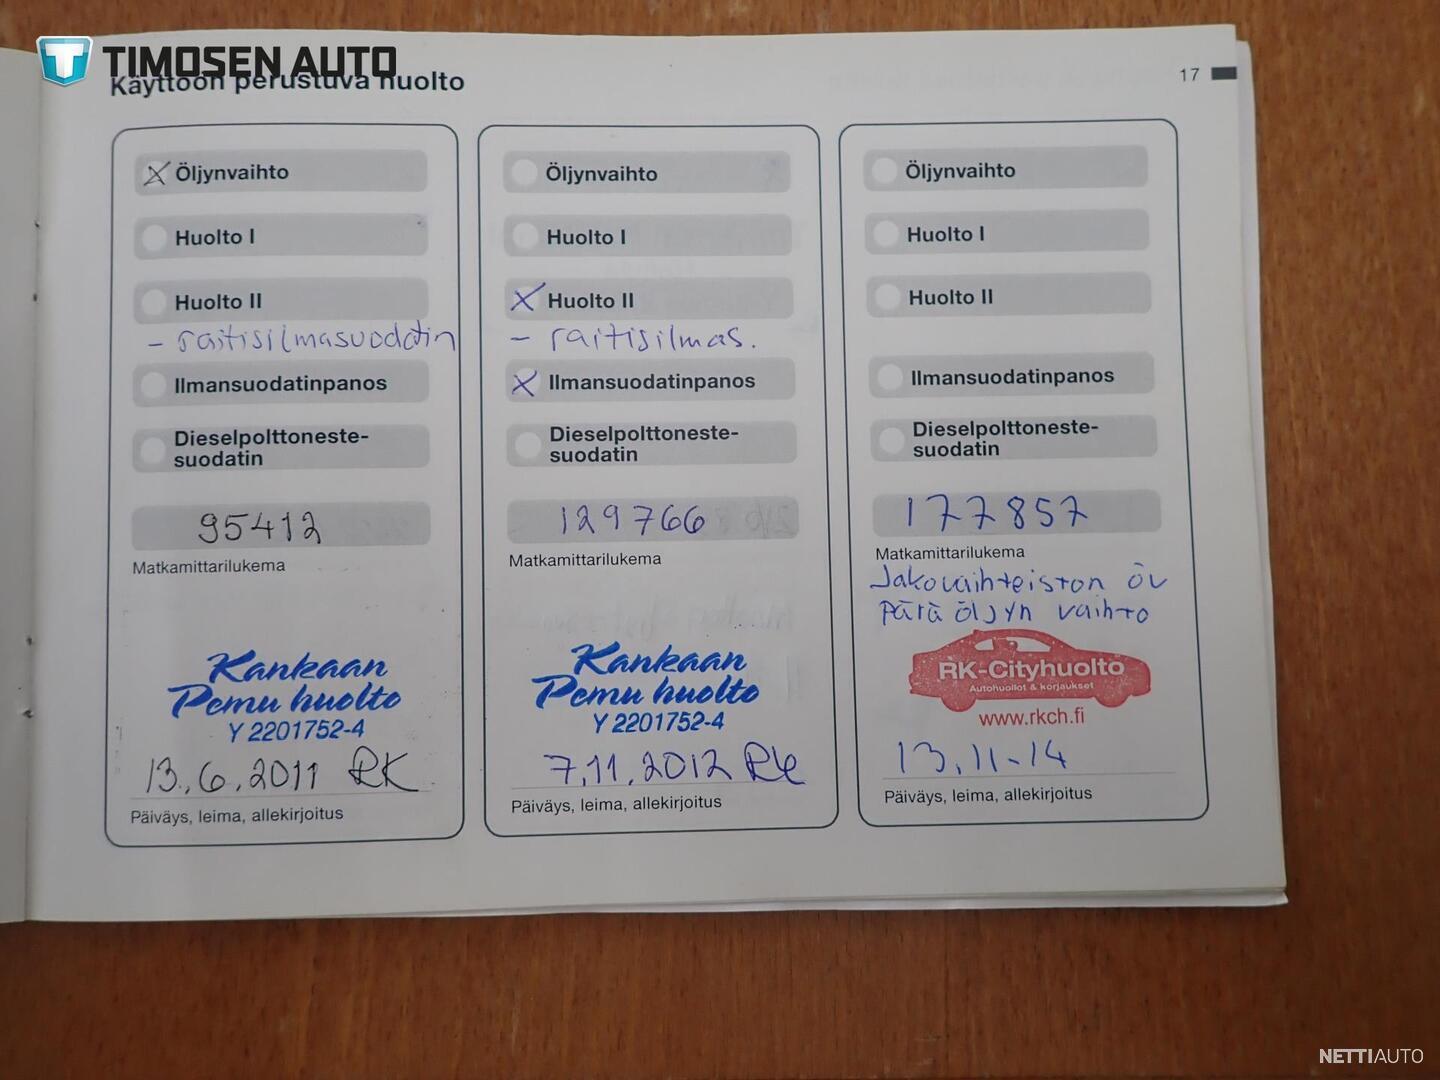 TIMOSEN AUTO
Käyttöön perustuva huolto
17
Öljynvaihto
Huolto I
Huolto II
- raitisilmasuodatin
Ilmansuodatinpanos
Dieselpolttoneste-
suodatin
95412
Matkamittarilukema
Kankaan
Pemu huolto
Y 2201752-4
13.6.2011 RK
Päiväys, leima, allekirjoitus
Öljynvaihto
Huolto I
Huolto II
- raitisilmas.
Ilmansuodatinpanos
Dieselpolttoneste-
suodatin
129766
Matkamittarilukema
Kankaan
Pemu huolto
Y 2201752-4
7.11.2012 RK
Päiväys, leima, allekirjoitus
Öljynvaihto
Huolto I
Huolto II
Ilmansuodatinpanos
Dieselpolttoneste-
suodatin
177857
Matkamittarilukema
Jakovaihteiston öv
Perä öljyn vaihto
RK-Cityhuolto
Autohuollot & korjaukset
www.rkch.fi
13.11-14
Päiväys, leima, allekirjoitus
NETTIAUTO